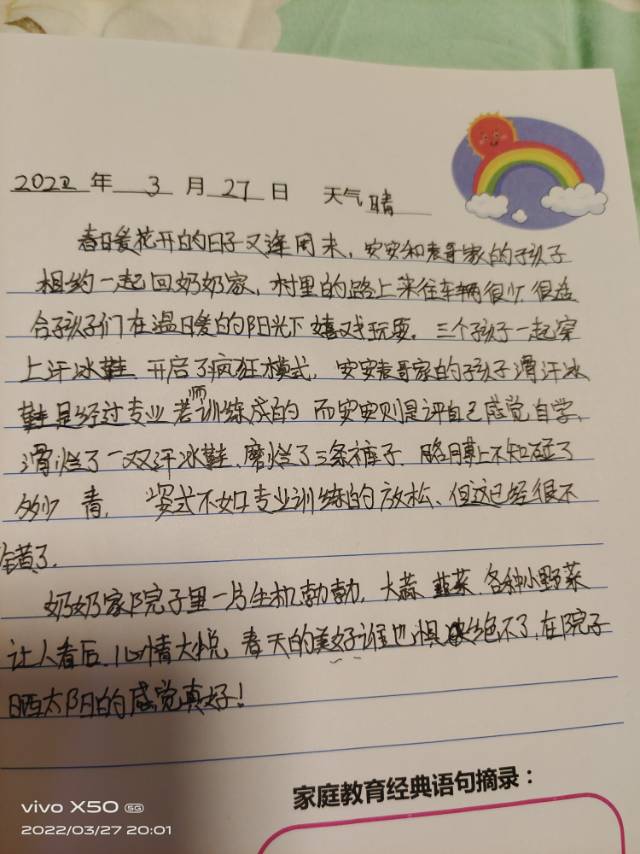 2022年 3 月 27 日 天气 晴
春日爱花开的日子又逢周末，安安和表哥家的孩子
相约一起回奶奶家，村里的路上来往车辆很少很适
合孩子们在温日爱的阳光下嬉戏玩耍。三个孩子一起穿
上汗冰鞋 开启了疯狂模式，安安表哥家的孩子滑汗冰
鞋是经过专业老师训练成的 而安安则是评自己感觉自学，
滑烂了一双汗冰鞋、磨烂了三条裤子 胳月膊上不知碰了
多少 青， 姿式不如专业训练的放松、但这已经很不
错了.
奶奶家院子里一片生机勃勃，大蒜 韭菜 各种小野菜
让人看后、心情大悦 春天的美好谁也惧绝不了，在院子
晒太阳的感觉真好！
家庭教育经典语句摘录：
vivo X50 5G
2022/03/27 20:01